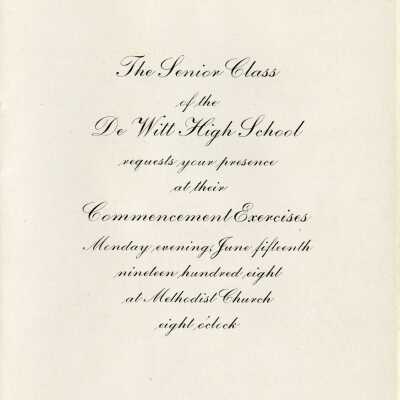 The Senior Class
of the
De Witt High School
requests your presence
at their
Commencement Exercises
Monday evening, June fifteenth
nineteen hundred eight
at Methodist Church
eight o'clock